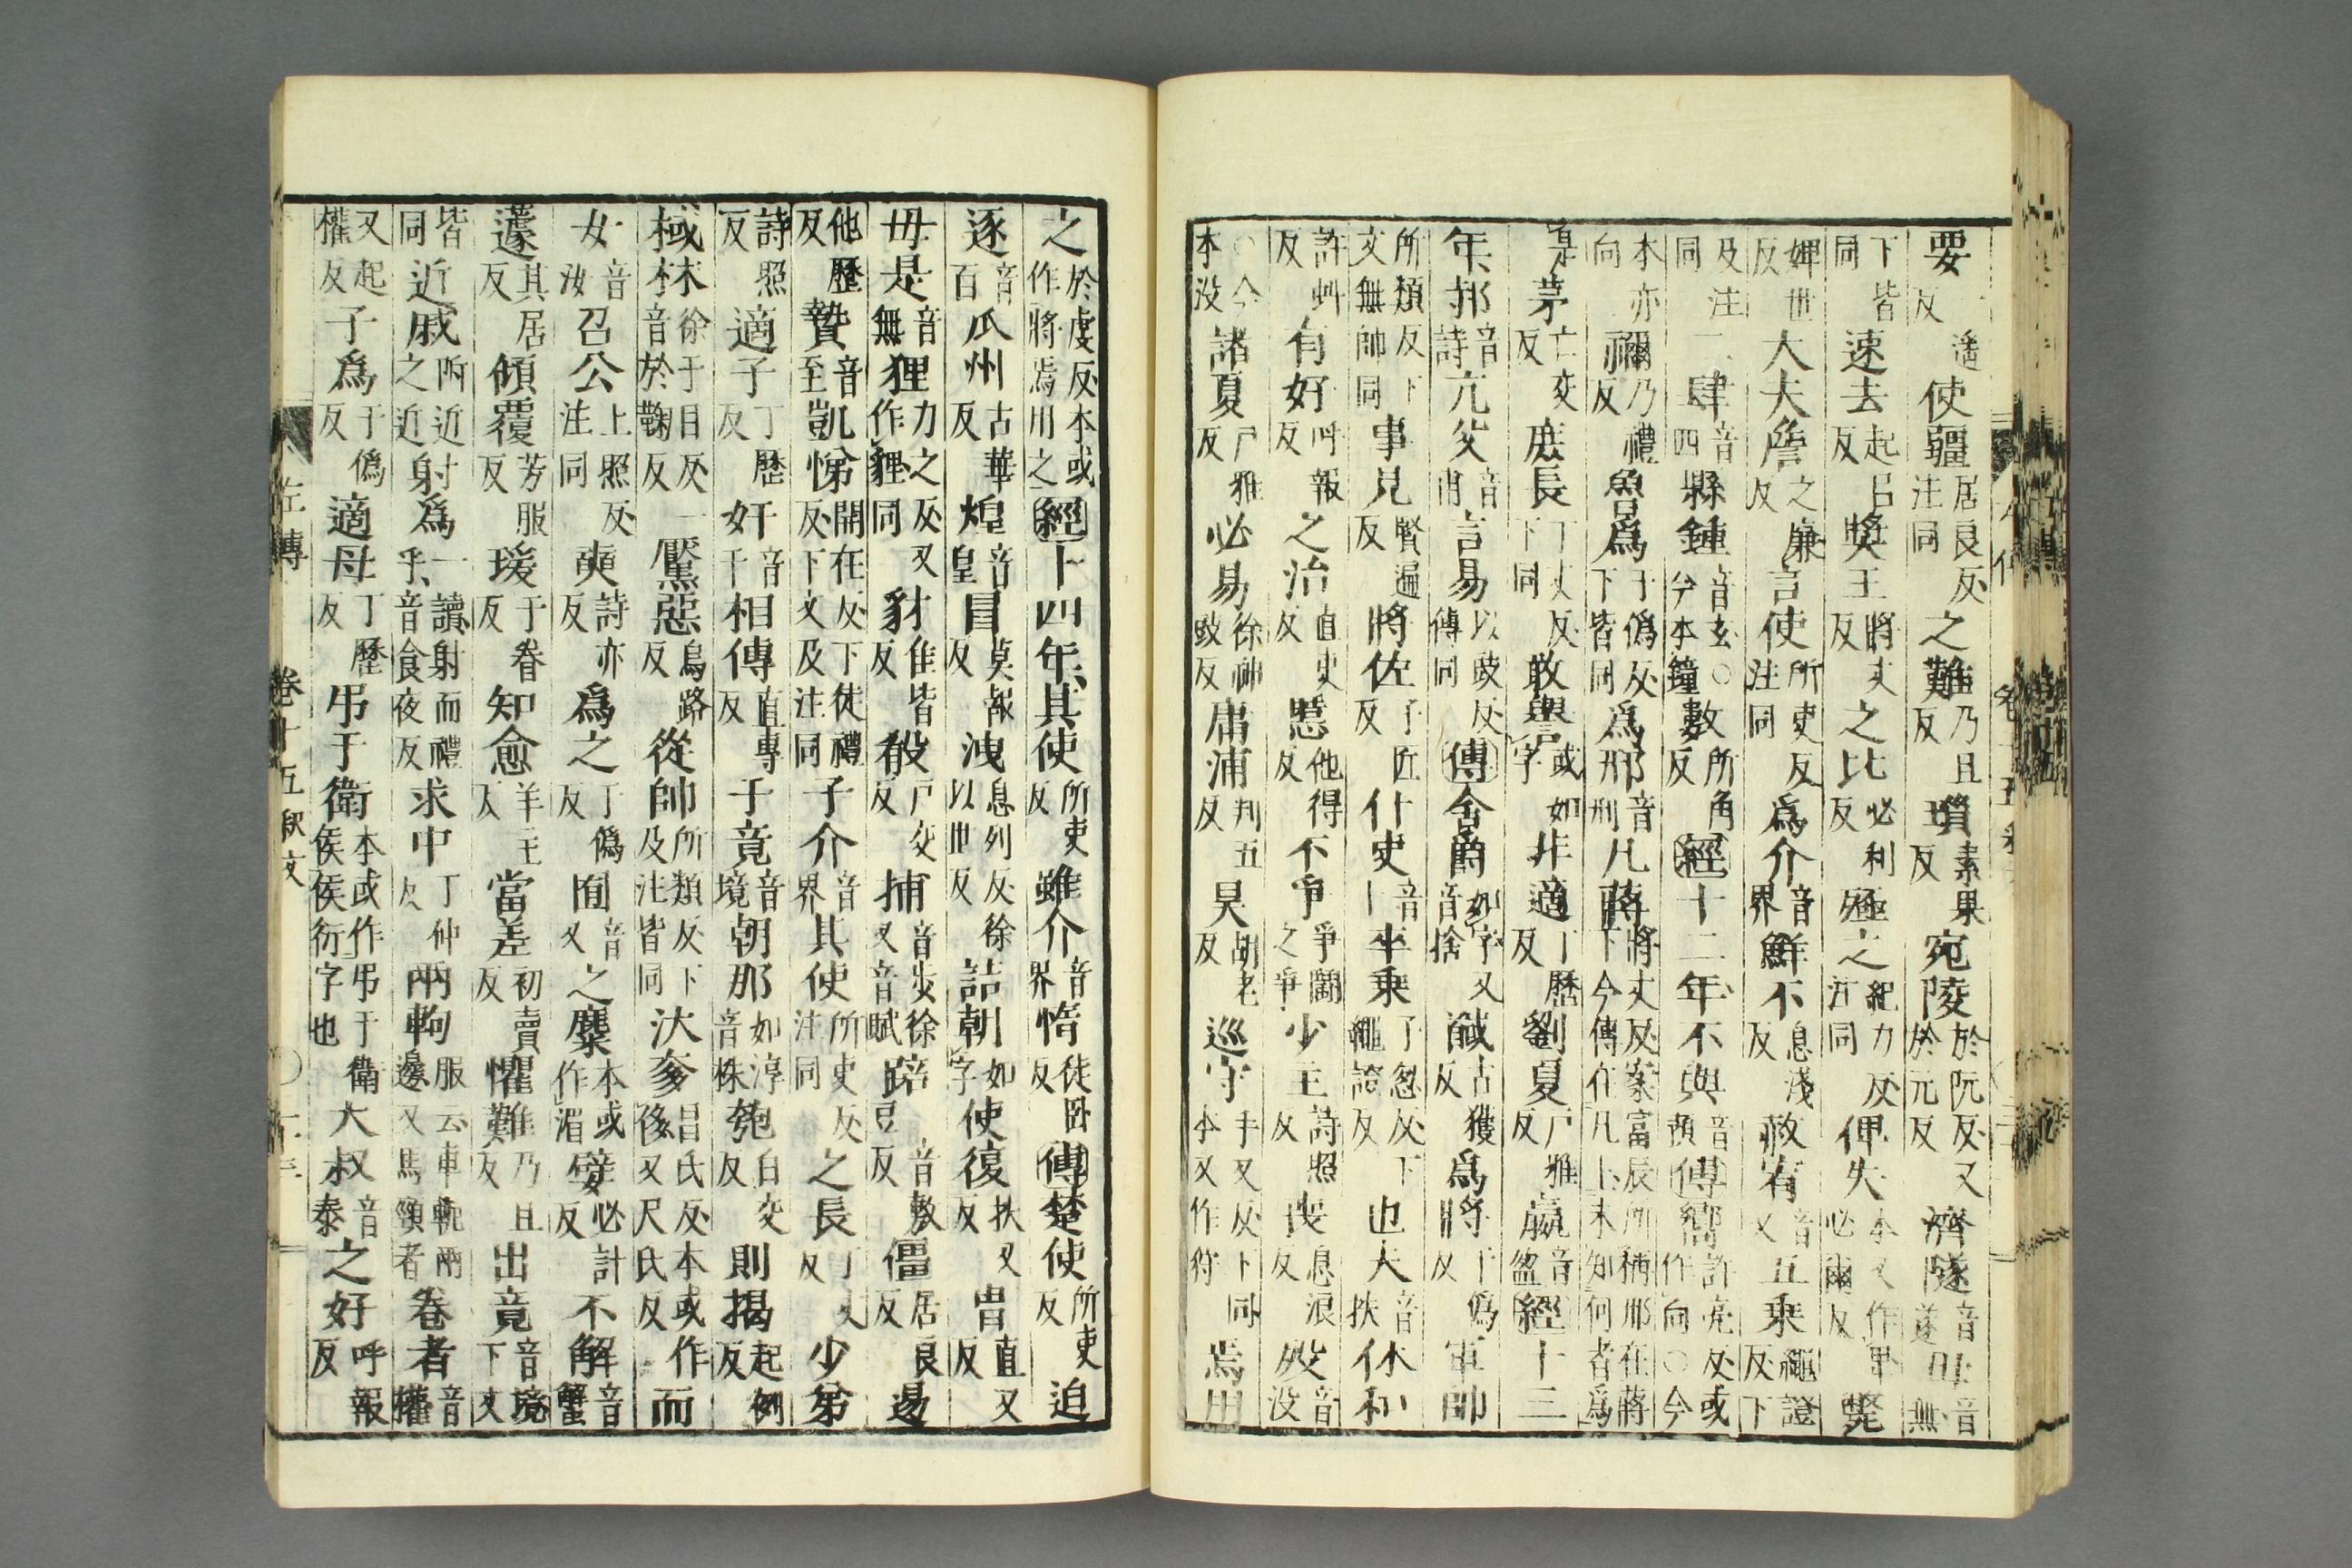 要一遙反使疆居良反注同之難乃旦反瑣素果反宛陵於阮反又於元反濟隧音遂毋音無
下皆同速去起呂反奬王將丈反之比必利反殛之紀力反注同俾失本又作卑必爾反斃
婢世反大夫詹之廉反言使所吏反注同爲介音界鮮不息淺反赦宥音又五乘繩證反下
及注同一肆音四縣鍾音玄○今本鐘數所角反經十二年不與音預傳嚮許亮反或作向○今
本亦向禰乃禮反魯爲于僞反下皆同爲邢音刑凡蔣將丈反案富辰所稱邢在蔣下今傳在凡上未知何者爲
是茅亡交反庶長丁丈反下同敢譽或如字非適丁歷反劉夏戶雅反嬴音盈經十三
年邿音詩亢父音甫言易以豉反傳同傳舍爵如字又音捨馘古獲反爲將于僞反軍帥
所類反下文無帥同事見賢遍反將佐子匠反什吏音十卒乘子忽反下繩證反也夫音扶休和
許虯反有好呼報反之治直吏反慝他得反不爭爭鬭之爭少主詩照反喪息浪反歿音没
○今本没諸夏戶雅反必易徐神豉反庸浦判五反昊胡老反巡守手又反下同本又作狩焉用
之於虔反本或作將焉用之經十四年其使所吏反雖介音界惰徒臥反傳楚使所吏反迫
逐音百瓜州古華反煌音皇冒莫報反洩息列反徐以世反詰朝如字使復扶又反冑直又反
毋是音無狸力之反又作貍同豺仕皆反殽戶交反捕音步徐又音賦踣音敷豆反僵居良反邊
他歷反贄音至凱悌開在反下徒禮反下文及注同子介音界其使所吏反注同之長丁丈反少弟
詩照反適子丁歷反奸音干相傳直專反于竟音境朝那如淳音株匏白交反則揭起例反
棫林徐于目反一音於鞠反黶惡烏路反從帥所類反下及注皆同汏奓昌氏反本或作侈又尺氏反而
女音汝召公上照反注同奭詩亦反爲之丁僞反囿音又之麋本或作湄嬖必計反不解音蟹
蘧其居反傾覆芳服反瑗于眷反知愈羊主反當差初賣反懼難乃旦反出竟音境下文
皆同近戚附近之近射爲一讀射而禮乎音食夜反求中丁仲反兩軥服云車軛兩邊叉馬頸者卷者音權
又起權反子爲于僞反適母丁歷反弔于衛本或作弔于衛侯侯衍字也大叔音泰之好呼報反
左傳
卷十五釈文